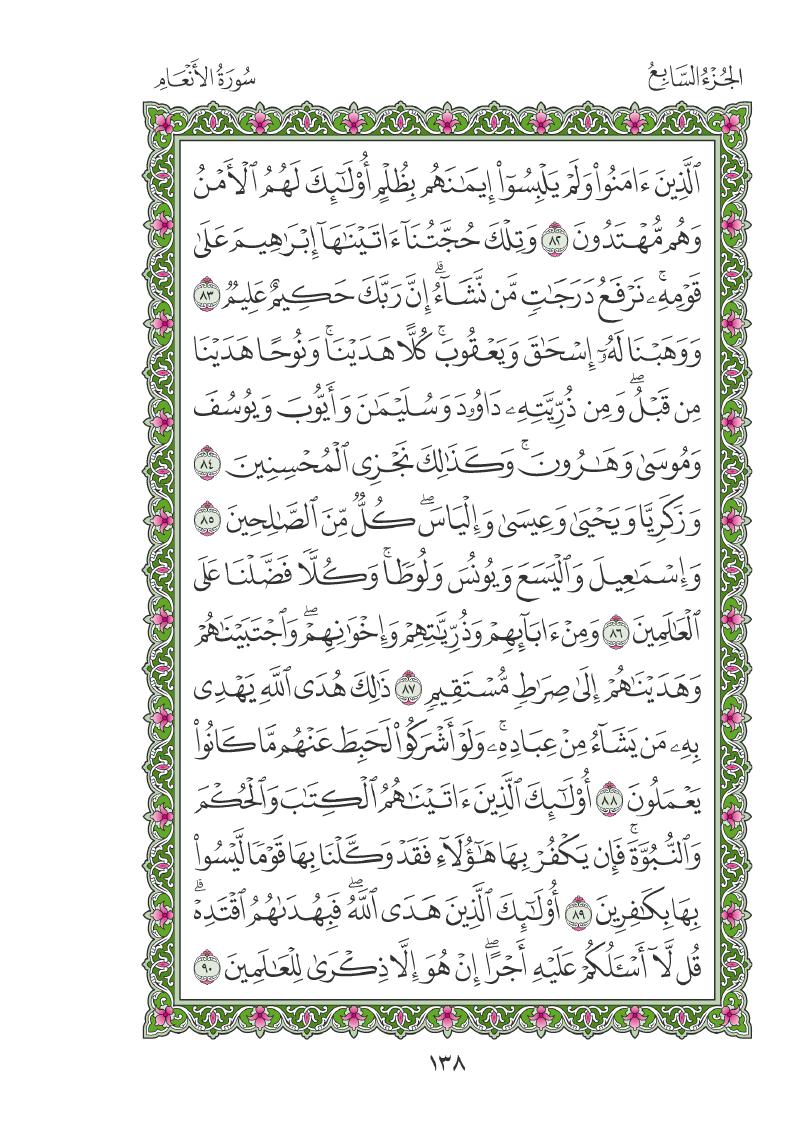 الجُزْءُ السَّابِعُ
سُورَةُ الأَنْعَامِ
ٱلَّذِينَ ءَامَنُوا۟ وَلَمْ يَلْبِسُوٓا۟ إِيمَٰنَهُم بِظُلْمٍ أُو۟لَٰٓئِكَ لَهُمُ ٱلْأَمْنُ
وَهُم مُّهْتَدُونَ ٨٢ وَتِلْكَ حُجَّتُنَآ ءَاتَيْنَٰهَآ إِبْرَٰهِيمَ عَلَىٰ
قَوْمِهِۦۚ نَرْفَعُ دَرَجَٰتٍ مَّن نَّشَآءُۗ إِنَّ رَبَّكَ حَكِيمٌ عَلِيمٌ ٨٣
وَوَهَبْنَا لَهُۥٓ إِسْحَٰقَ وَيَعْقُوبَۚ كُلًّا هَدَيْنَاۚ وَنُوحًا هَدَيْنَا
مِن قَبْلُۖ وَمِن ذُرِّيَّتِهِۦ دَاوُۥدَ وَسُلَيْمَٰنَ وَأَيُّوبَ وَيُوسُفَ
وَمُوسَىٰ وَهَٰرُونَۚ وَكَذَٰلِكَ نَجْزِى ٱلْمُحْسِنِينَ ٨٤
وَزَكَرِيَّا وَيَحْيَىٰ وَعِيسَىٰ وَإِلْيَاسَۖ كُلٌّ مِّنَ ٱلصَّٰلِحِينَ ٨٥
وَإِسْمَٰعِيلَ وَٱلْيَسَعَ وَيُونُسَ وَلُوطًاۚ وَكُلًّا فَضَّلْنَا عَلَى
ٱلْعَٰلَمِينَ ٨٦ وَمِنْ ءَابَآئِهِمْ وَذُرِّيَّٰتِهِمْ وَإِخْوَٰنِهِمْۖ وَٱجْتَبَيْنَٰهُمْ
وَهَدَيْنَٰهُمْ إِلَىٰ صِرَٰطٍ مُّسْتَقِيمٍ ٨٧ ذَٰلِكَ هُدَى ٱللَّهِ يَهْدِى
بِهِۦ مَن يَشَآءُ مِنْ عِبَادِهِۦۚ وَلَوْ أَشْرَكُوا۟ لَحَبِطَ عَنْهُم مَّا كَانُوا۟
يَعْمَلُونَ ٨٨ أُو۟لَٰٓئِكَ ٱلَّذِينَ ءَاتَيْنَٰهُمُ ٱلْكِتَٰبَ وَٱلْحُكْمَ
وَٱلنُّبُوَّةَۚ فَإِن يَكْفُرْ بِهَا هَٰٓؤُلَآءِ فَقَدْ وَكَّلْنَا بِهَا قَوْمًا لَّيْسُوا۟
بِهَا بِكَٰفِرِينَ ٨٩ أُو۟لَٰٓئِكَ ٱلَّذِينَ هَدَى ٱللَّهُۖ فَبِهُدَىٰهُمُ ٱقْتَدِهْۗ
قُل لَّآ أَسْـَٔلُكُمْ عَلَيْهِ أَجْرًاۖ إِنْ هُوَ إِلَّا ذِكْرَىٰ لِلْعَٰلَمِينَ ٩٠
١٣٨